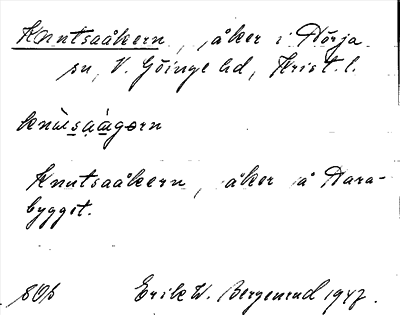 Knutsaåkern, åker i Nõrja
sn, V. Göinge hd, Krist. l.
Knutsaåkern, åker å Hara-
bygget.
SOs Erik W. Bergenrud 1947.